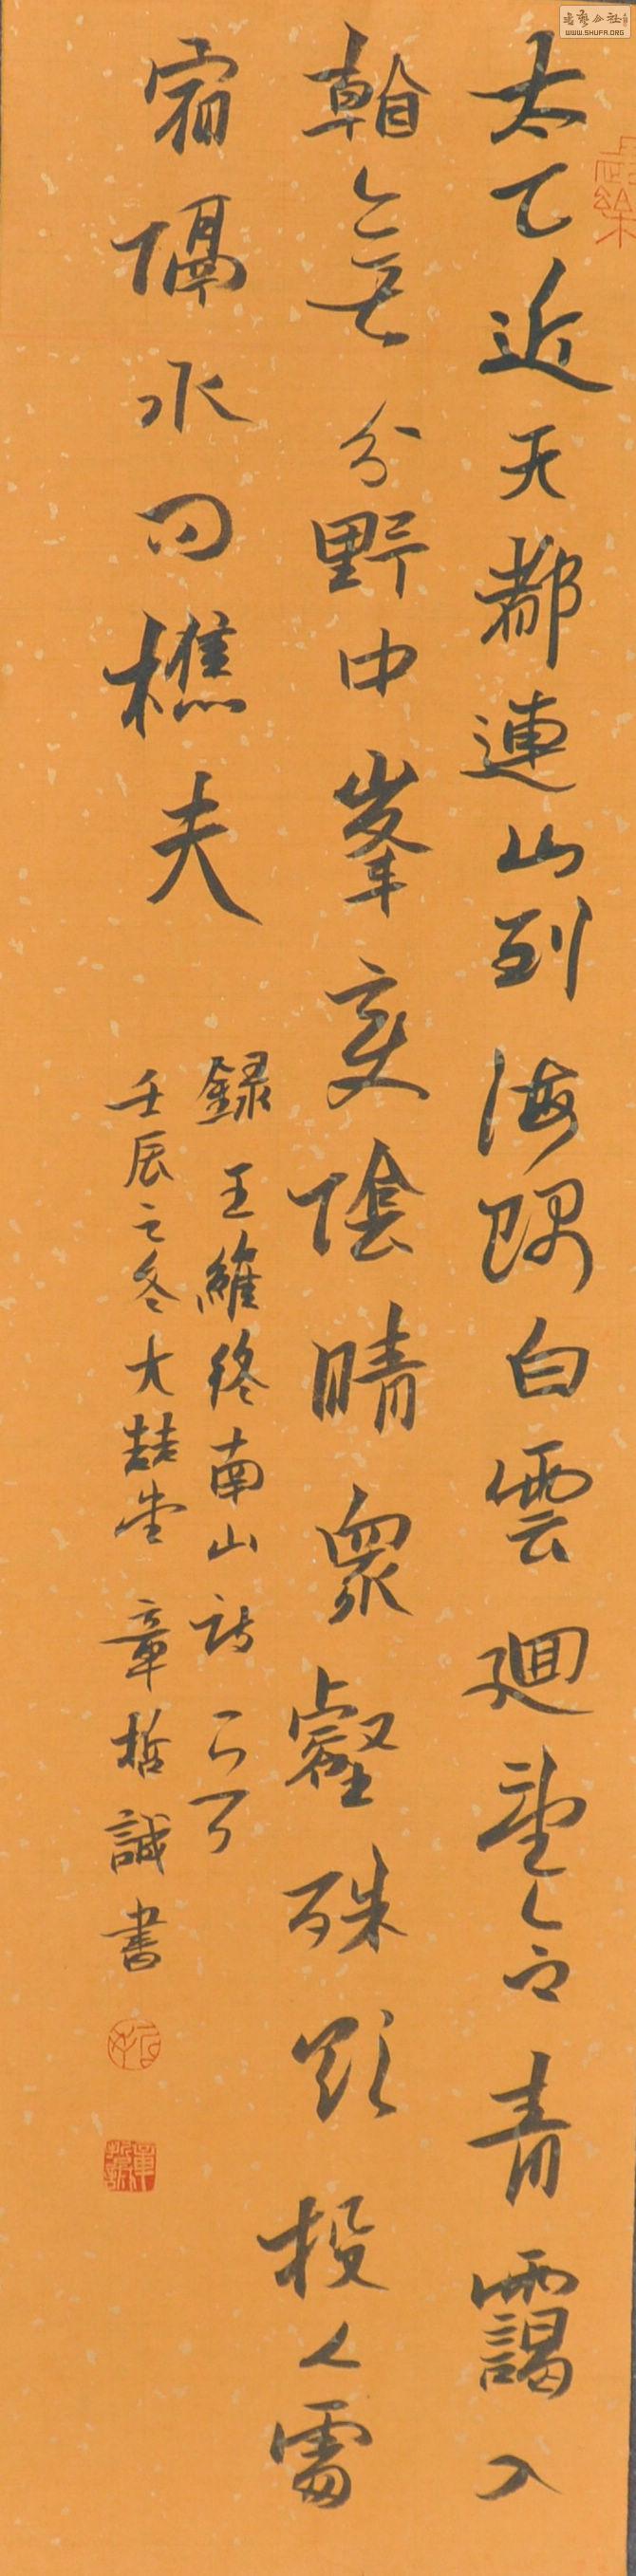 太乙近天都連山到海隅白雲迴望合青靄入
看今無分野中峯變陰晴眾壑殊欲投人處
宿隔水問樵夫
錄王維終南山詩一首
壬辰之冬大喆堂章哲誠書
WWW.SHUFA.ORG